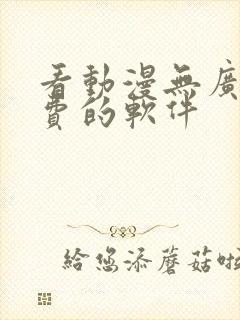 看動漫無廣
費的軟件
給您添蘑菇啦